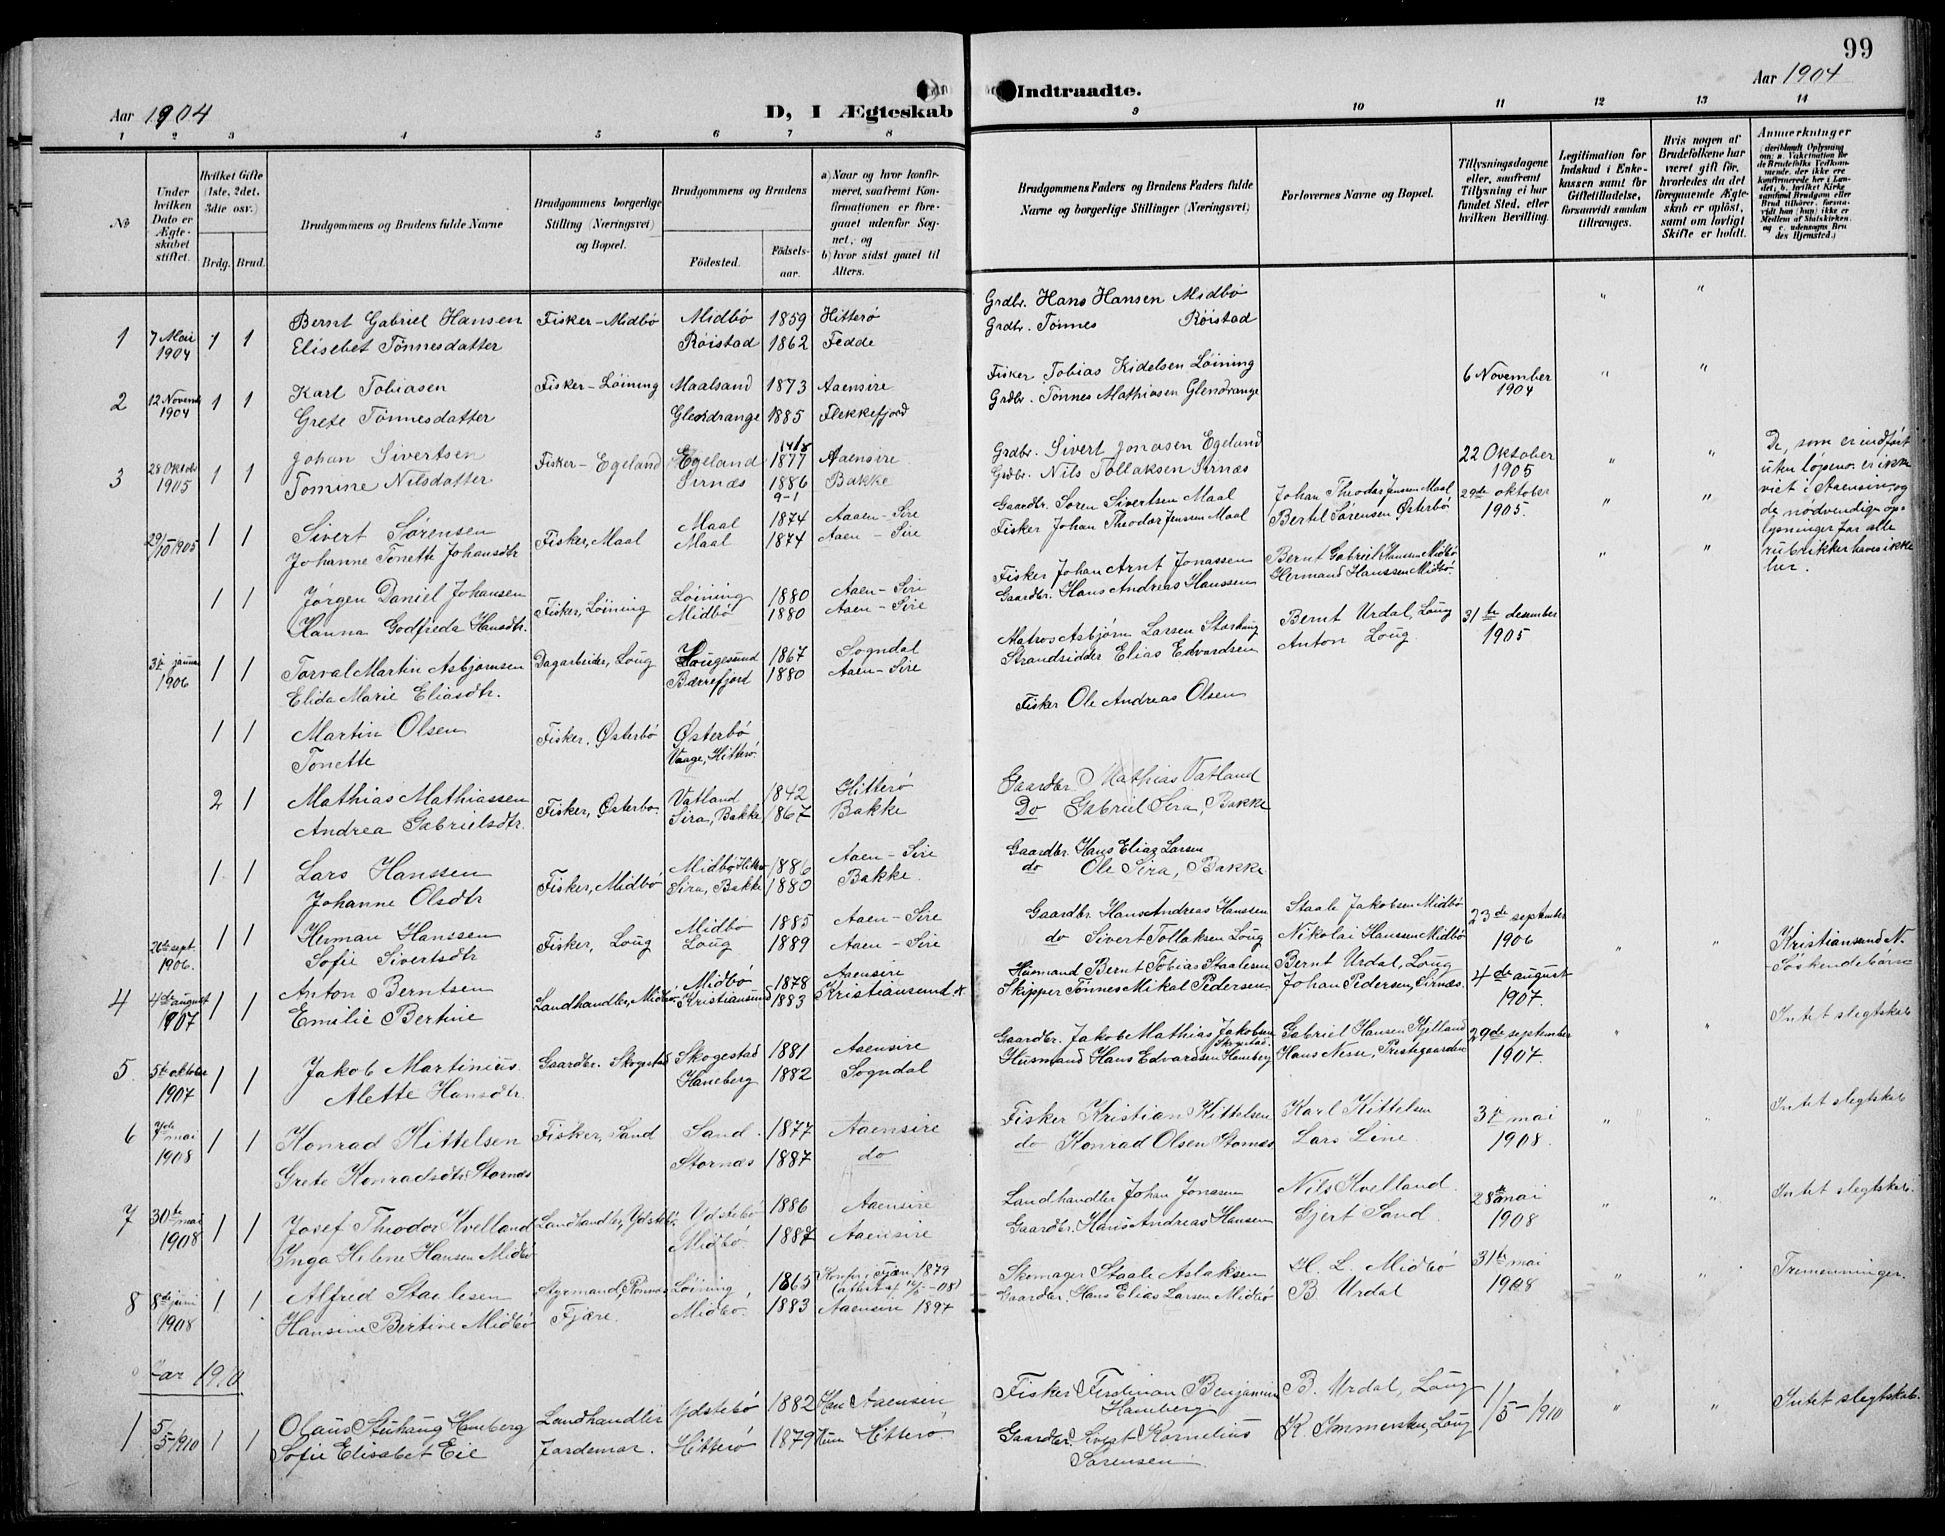 99
Aar 1904
D, I Ægteskab
Indtraadte.
Aar 1904
1 2 3 4 5 6 7 8
9 10 11 12 13 14
No
Under hvilken Dato er Ægteskabet stiftet.
Hvilket Gifte (1ste, 2det, 3die osv.)
Brdg. Brud.
Brudgommens og Brudens fulde Navne
Brudgommens borgerlige Stilling (Næringsvei) og Bopæl.
Brudgommens og Brudens
Födested.
Födselsaar.
a) Naar og hvor konfirmeret, saafremt Konfirmationen er foregaaet udenfor Sognet, og
b) hvor sidst gaaet til Alters.
Brudgommens Faders og Brudens Faders fulde Navne og borgerlige Stillinger (Næringsvei)
Forlovernes Navne og Bopæl.
Tillysningsdagene eller, saafremt Tillysning ei har fundet Sted, efter hvilken Bevilling.
Legitimation for Indskud i Enkekassen samt for Giftetilladelse, forsaavidt saadan tiltrænges.
Hvis nogen af Brudefolkene har været gift för, hvorledes da det foregaaende Ægteskab er oplöst, samt om lovligt Skifte er holdt.
Anmerkninger
(deriblandt Oplysning om: a. Vakcination for de Brudefolks Vedkommende, der ikke ere konfirmerede her i Landet, b. hvilket Kirkesamfund Brudgom eller Brud tilhører, forsaavidt han (hun) ikke er Medlem af Statskirken, og c. udensogns Brudes Hjemsted.)
1 7 Mai 1904 1 1 Bernt Gabriel Hansen Fisker - Midbö Midbö 1859 Hitterö Grdbr. Hans Hansen Midbö " "
Elisebet Tönnesdatter Röistad 1862 Fedde Grdbr. Tönnes Röistad
2 12 Novemb 1904 1 1 Karl Tobiasen Fisker - Löining Maalsand 1873 Aaensire Fisker Tobias Kidelsen Löining 6 November 1904 " "
Grete Tönnesdatter Glendrange 1885 Flekkefjord Grdbr. Tönnes Mathiasen Glendrange
3 28 Oktob 1905 1 1 Johan Sivertsen Fisker - Egeland Egeland 14/8 1877 Aaensire Grdbr. Sivert Jonasen Egeland 22 Oktober 1905 " "
Tomine Nilsdatter Sirnæs 1886 9-1 Bakke Grdbr. Nils Tollaksen Sirnæs
De, som er indført uten løpeno. er ikke viet i Aaensire, og de nodvendige oplysninger for alle rubrikker haves ikke her.
29/10 1905 1 1 Sivert Sørensen Fisker, Maal Maal 1874 Aaen-Sire Gaardbr. Sören Sivertsen Maal Johan Theodor Jensen Maal 29de oktober 1905. " "
Johanne Tonette Johansdtr Maal 1874 Aaen-Sire Fisker Johan Theodor Jensen Maal Bertel Sörensen Østerbö
1 1 Jörgen Daniel Johansen Fisker, Löining Löining 1880 Aaen-Sire Fisker Johan Arnt Jonassen Bernt Gabriel Hansen Midbö " "
Hanna Godfreda Hansdtr. Midbö 1880 Aaen-Sire Gaardbr. Hans Andreas Hanssen Hermand Hanssen Midbö.
3 januar 1906 1 1 Torval Martin Asbjørnsen Dagarbeider, Loug 1867 Sogndal Matros Asbjørn Larsen Bernt Urdal, Loug 31te desember 1905
Elida Marie Eliasdtr. 1880 Aaen-Sire Strandsidder Elias Edvardsen Anton Loug.
1 1 Martin Olsen Fisker, Østerbö Østerbö Fisker Ole Andreas Olsen
Tonette Vaage, Hitterö.
2 1 Mathias Mathiassen Fisker, Østerbö. Vatland 1842 Hitterö Gaardbr. Mathias Vatland
Andrea Gabrielsdtr. Sira, Bakke 1867 Bakke Do Gabriel Sira, Bakke
1 1 Lars Hanssen Fisker, Midbö Midbö Hitterö 1886 Aaen-Sire Gaardbr. Hans Elias Larsen
Johanne Olsdtr Sira, Bakke 1880 Bakke. do Ole Sira, Bakke
26de sept. 1906. 1 1 Herman Hanssen Fisker, Loug Midbö 1885 Aaen-Sire Gaardbr. Hans Andreas Hanssen Staale Jakobsen Midbö 23de september 1906 " "
Sofie Sivertsdtr Loug 1889 Aaen-Sire do Sivert Tollaksen Loug Nikolai Hanssen Midbö
4 4de august 1907 1 1 Anton Berntsen Landhandler, Midbö Midbö 1878 Aaensire Husmand Bernt Tobias Staalesen Bernt Urdal, Loug 4de august 1907. " " Kristiansund N. Söskendebörn
Emilie Bertine Kristiansund 1883 Kristiansund Skipper Tönnes Mikal Pedersen Johan Pedersen, Sirnæs
5. 5te oktober 1907 1 1 Jakob Martinius. Gaardbr. Skogestad Skogestad 1881 Aaensire Gaardbr. Jakob Mathias Jakobsen Skogestad Gabriel Hansen Kjelland 29de september 1907 " " Intet slegtskab
Alette Hansdtr. Haneberg 1882 Sogndal Husmand Hans Edvardsen Haneberg Hans Nesse, Prestegaarden
6 7de mai 1908 1 1 Konrad Kittelsen Fisker, Sand Sand 1877 Aaensire Fisker Kristian Kittelsen Karl Kittelsen 3die mai 1908. " " Intet slegtskab
Grete Konradsdtr Stornæs Stornæs 1887 do do Konrad Olsen Stornæs Lars Line
7 30te mai 1908 1 1 Josef Theodor Kvelland Landhandler, Ydstebö Ydstebö 1886 Aaensire Landhandler Johan Jonasen Nils Kvelland. 28de mai 1908 " " Intet slegtskab.
Inga Helene Hansen Midbö Midbö 1887 Aaensire Gaardbr. Hans Andreas Hansen Gjert Sand.
8 8de juni 1908 1 1 Alfred Staalesen Styrmand, Fjære Löining, 1865 Konfr. i Fjære, 1879 Skomager Staale Aslaksen H. L. Midbö 31te mai 1908 " " Tremenninger.
Hansine Bertine Midbö Midbö 1883 Aaensire 1897 Gaardbr. Hans Elias Larsen Midbö B Urdal
Aar 1910
1 5/5 1910 1 1 Olaus Haneberg Landhandler Ydstebö 1882 Han Aaensire Fisker Ferdinan Benjamin Haneberg B. Urdal, Loug 1/5-1910 " " Intet slegtskab.
Sofie Elisabet Eie Hitterö 1879 Hun Hitterö Gaardbr. Kornelius Sörensen K. Loug